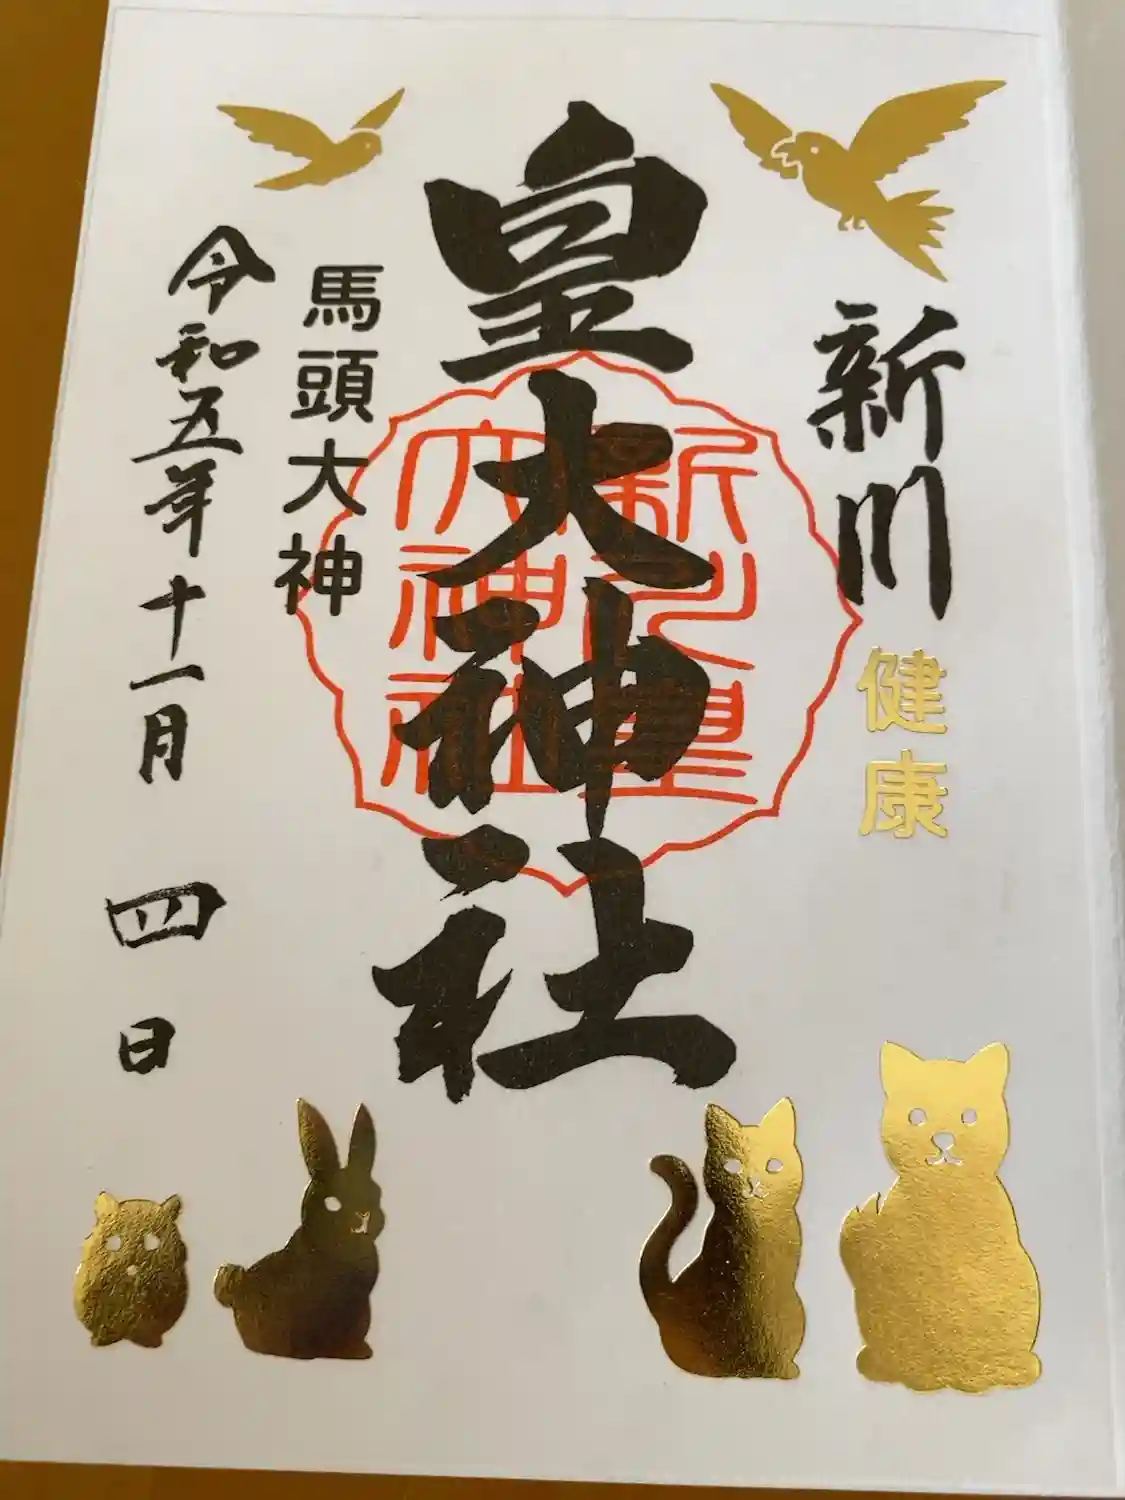 新川
健康
皇大神社
新川皇
大神社
馬頭大神
令和五年十一月四日